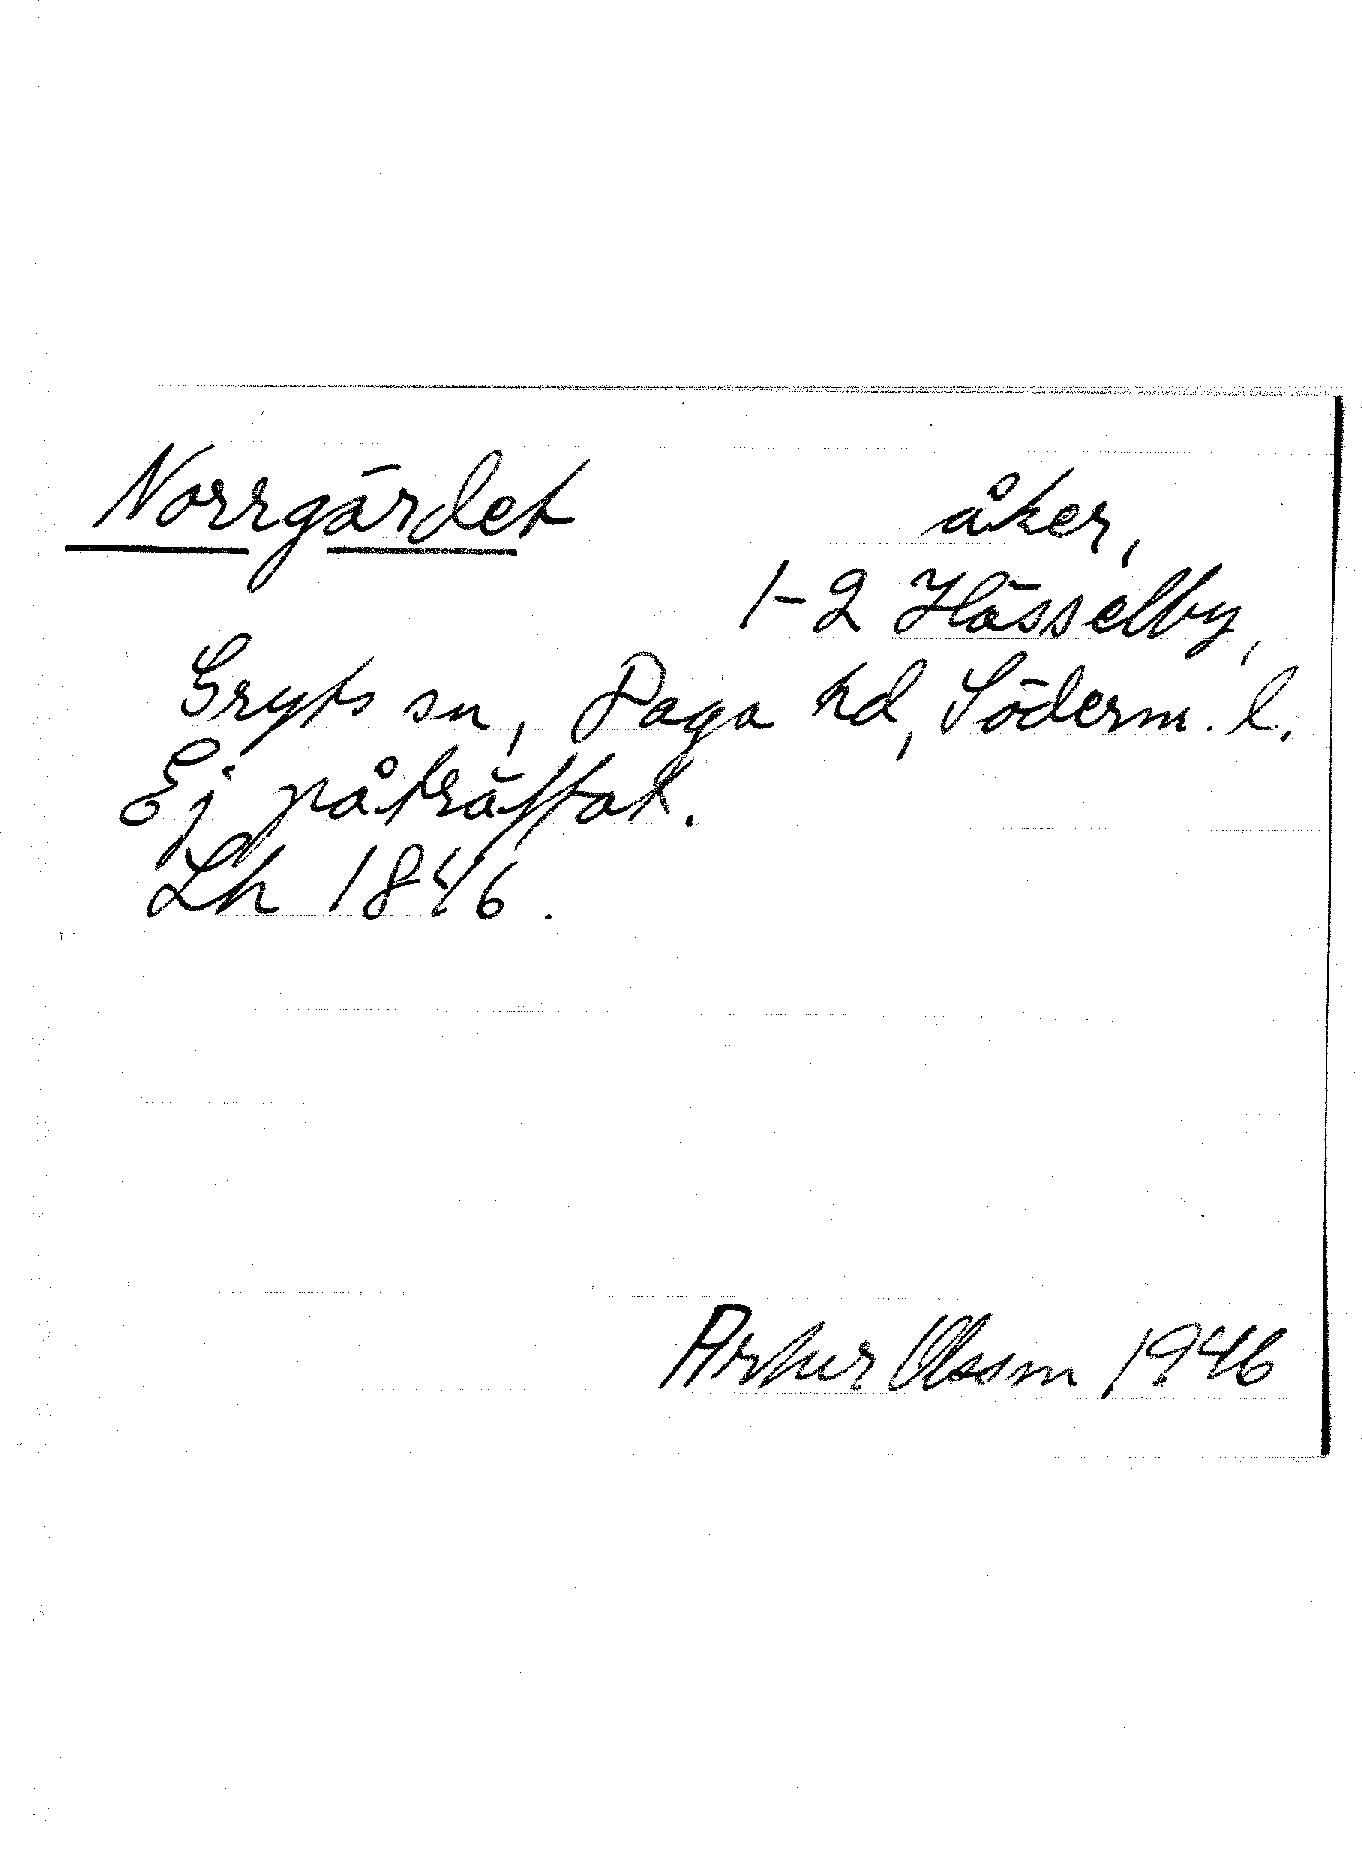 Norrgärdet åker,
1-2 Hässelby,
Gryts sn, Daga hd, Söderm. l.
Ej påträffat.
Lh 1846.
Arthur Olsson 1946